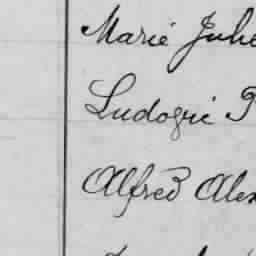 Marie Julie
Ludogie P
Alfred Alex